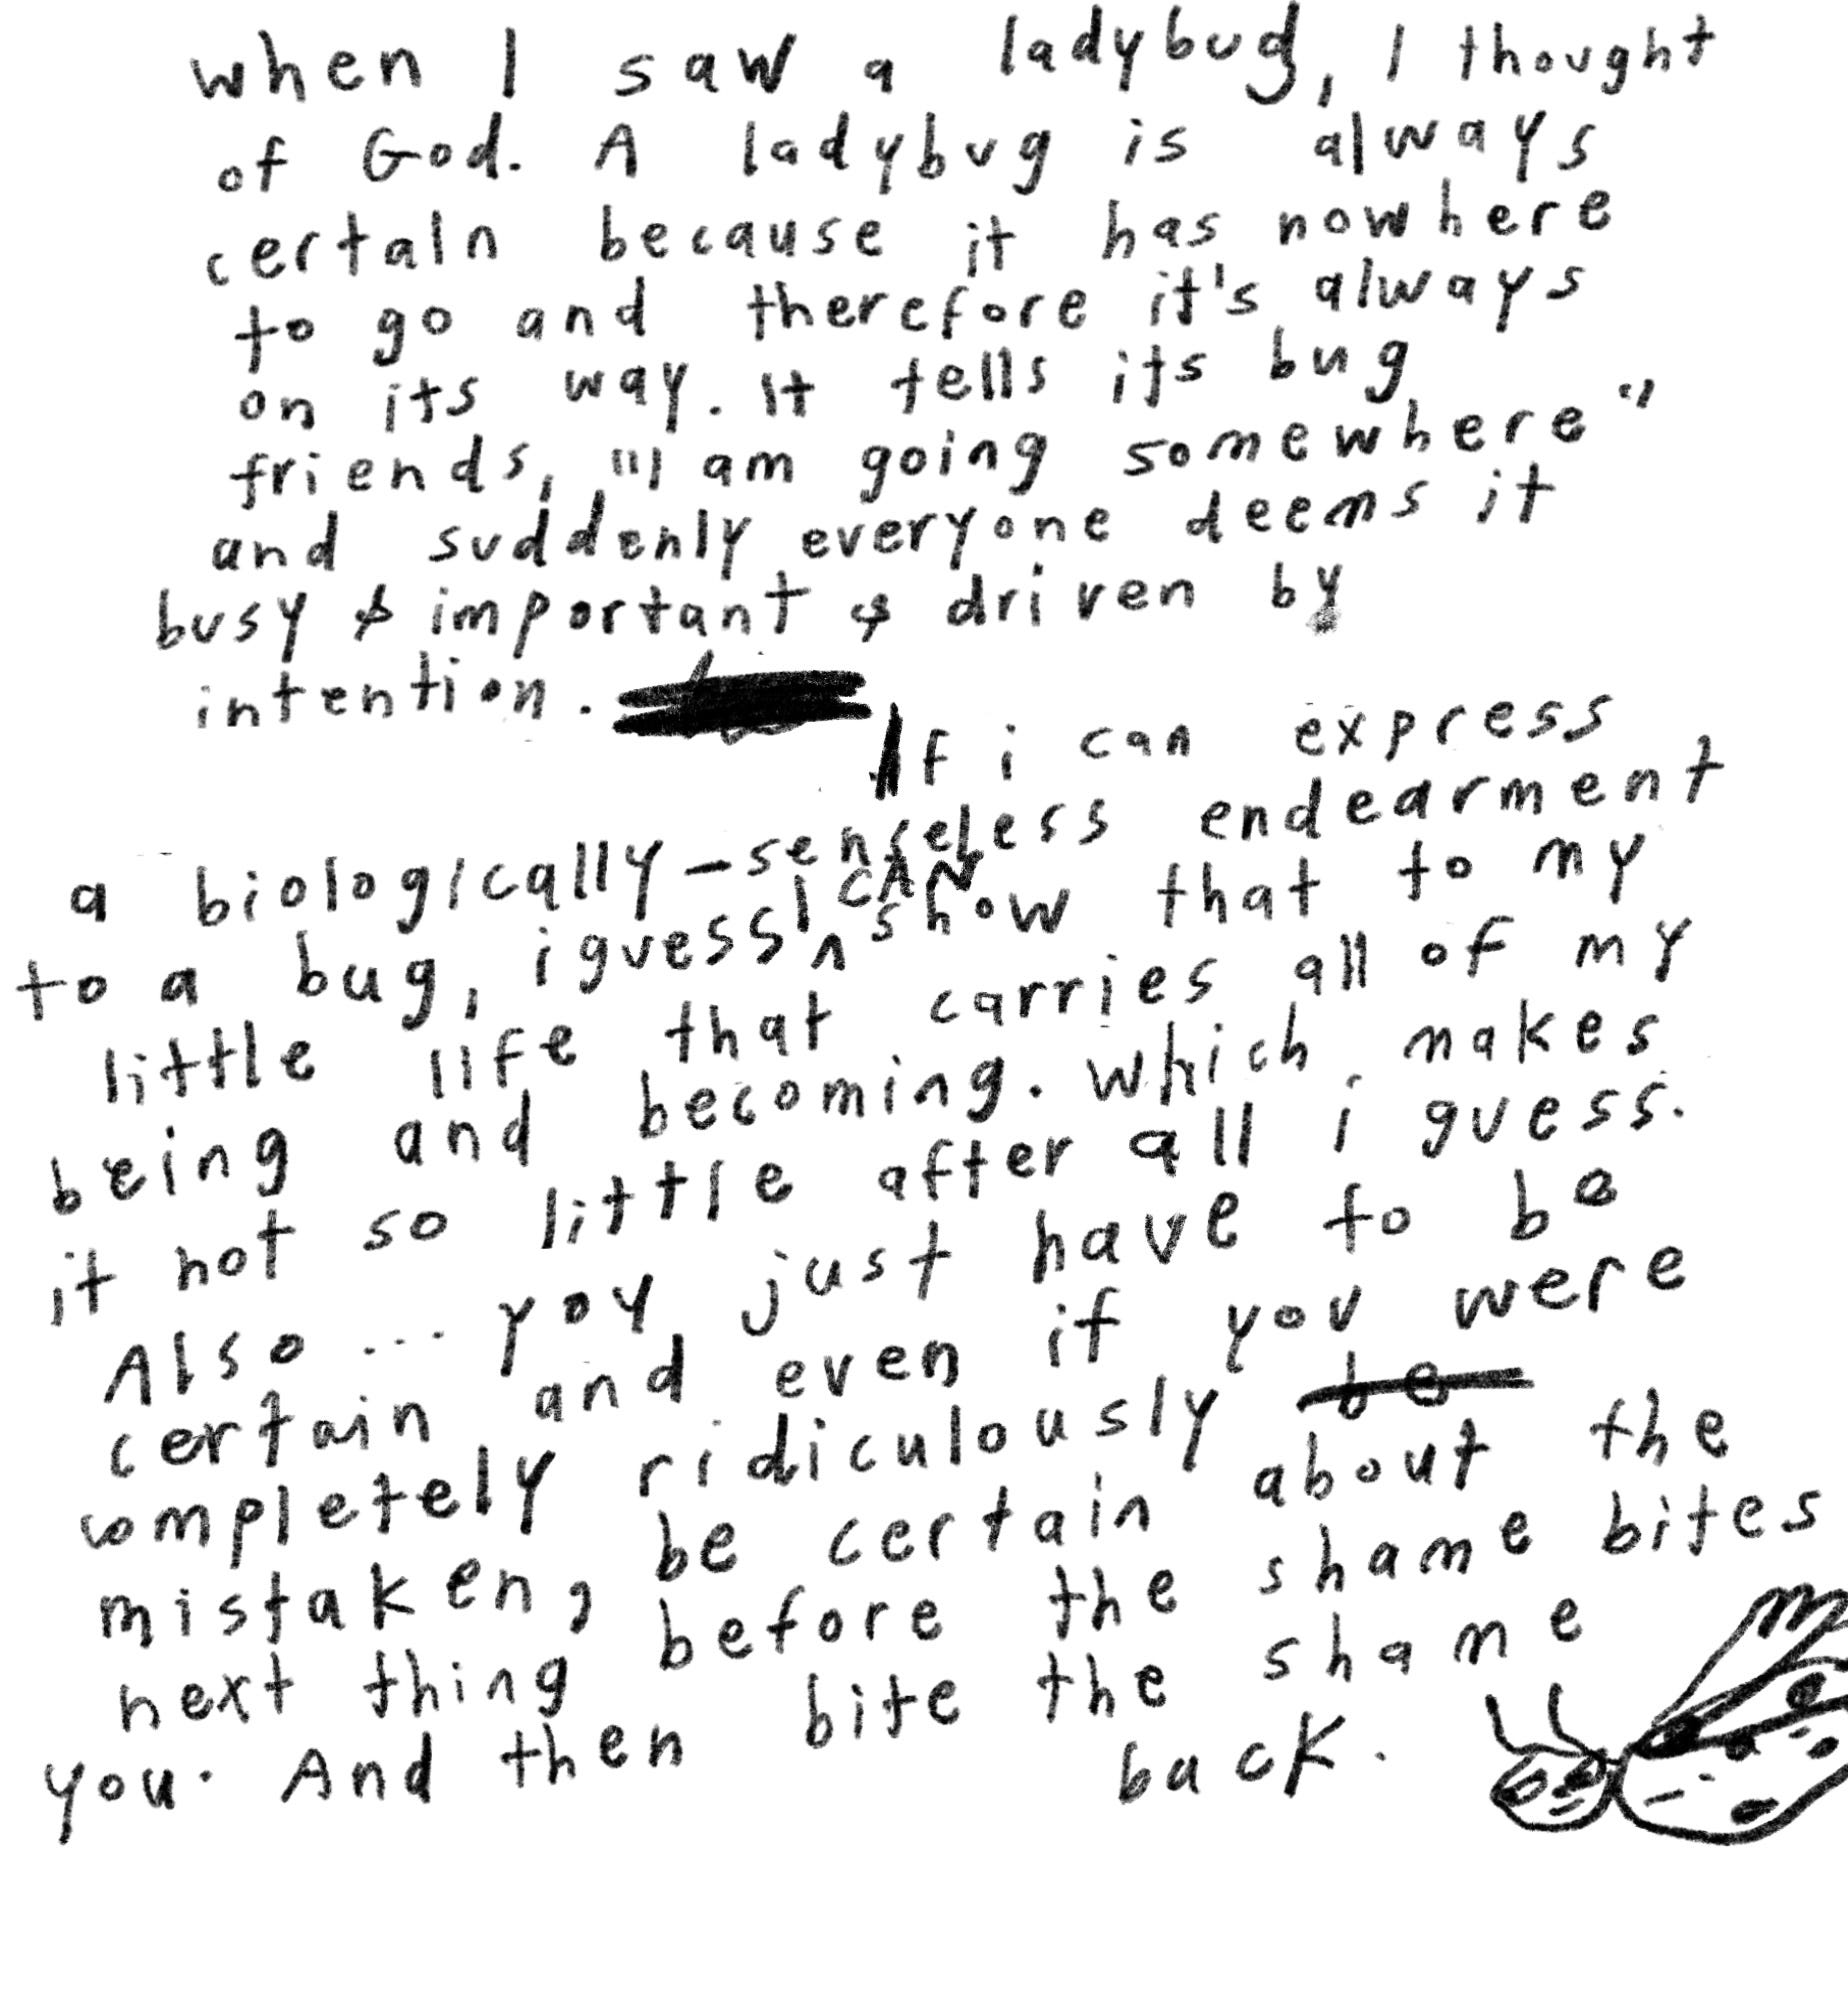 when I saw a ladybug, I thought
of God. A ladybug is always
certain because it has nowhere
to go and therefore it's always
on its way. It tells its bug
friends, "I am going somewhere"
and suddenly everyone deems it
busy & important & driven by
intention.
If i can express
a biologically-senseless endearment
to a bug, i guess I CAN show that to my
little life that carries all of my
being and becoming. which makes
it not so little after all i guess.
Also... you just have to be
certain and even if you were
completely ridiculously be
mistaken, be certain about the
next thing before the shame bites
you. And then bite the shame
back.